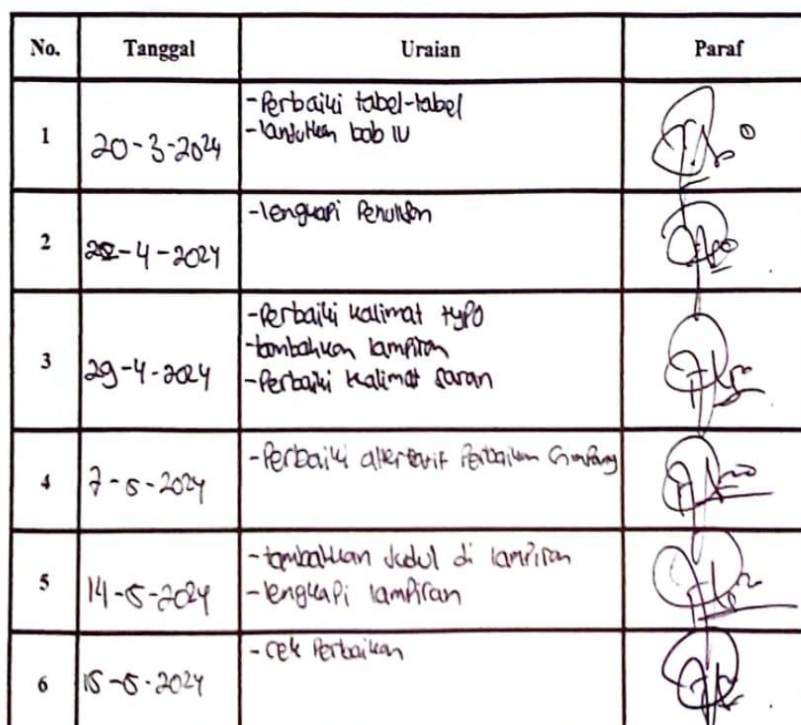 No. Tanggal Uraian Paraf
1 20-3-2024 -Perbaiki tabel-tabel
-lanjutkan bab IV
2 22-4-2024 -lengkapi Penulisan
3 29-4-2024 -Perbaiki kalimat typo
-tambahkan lampiran
-Perbaiki kalimat saran
4 7-5-2024 -Perbaiki alternatif Perbaikan Simpang
5 14-5-2024 -tambahkan Judul di lampiran
-lengkapi lampiran
6 15-5-2024 -cek Perbaikan